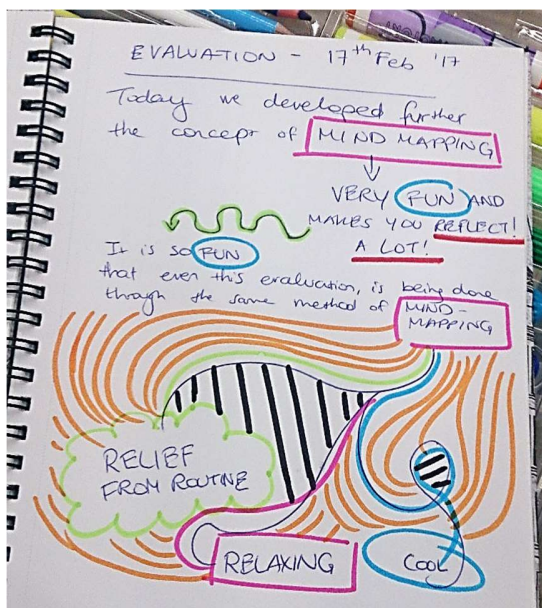 EVALUATION - 17th Feb '17
Today we developed further
the concept of MIND MAPPING
VERY FUN AND
MAKES YOU REFLECT!
A LOT!
It is so FUN
that even this evaluation, is being done
through the same method of MIND-
MAPPING
RELIEF
FROM ROUTINE
RELAXING
COOL